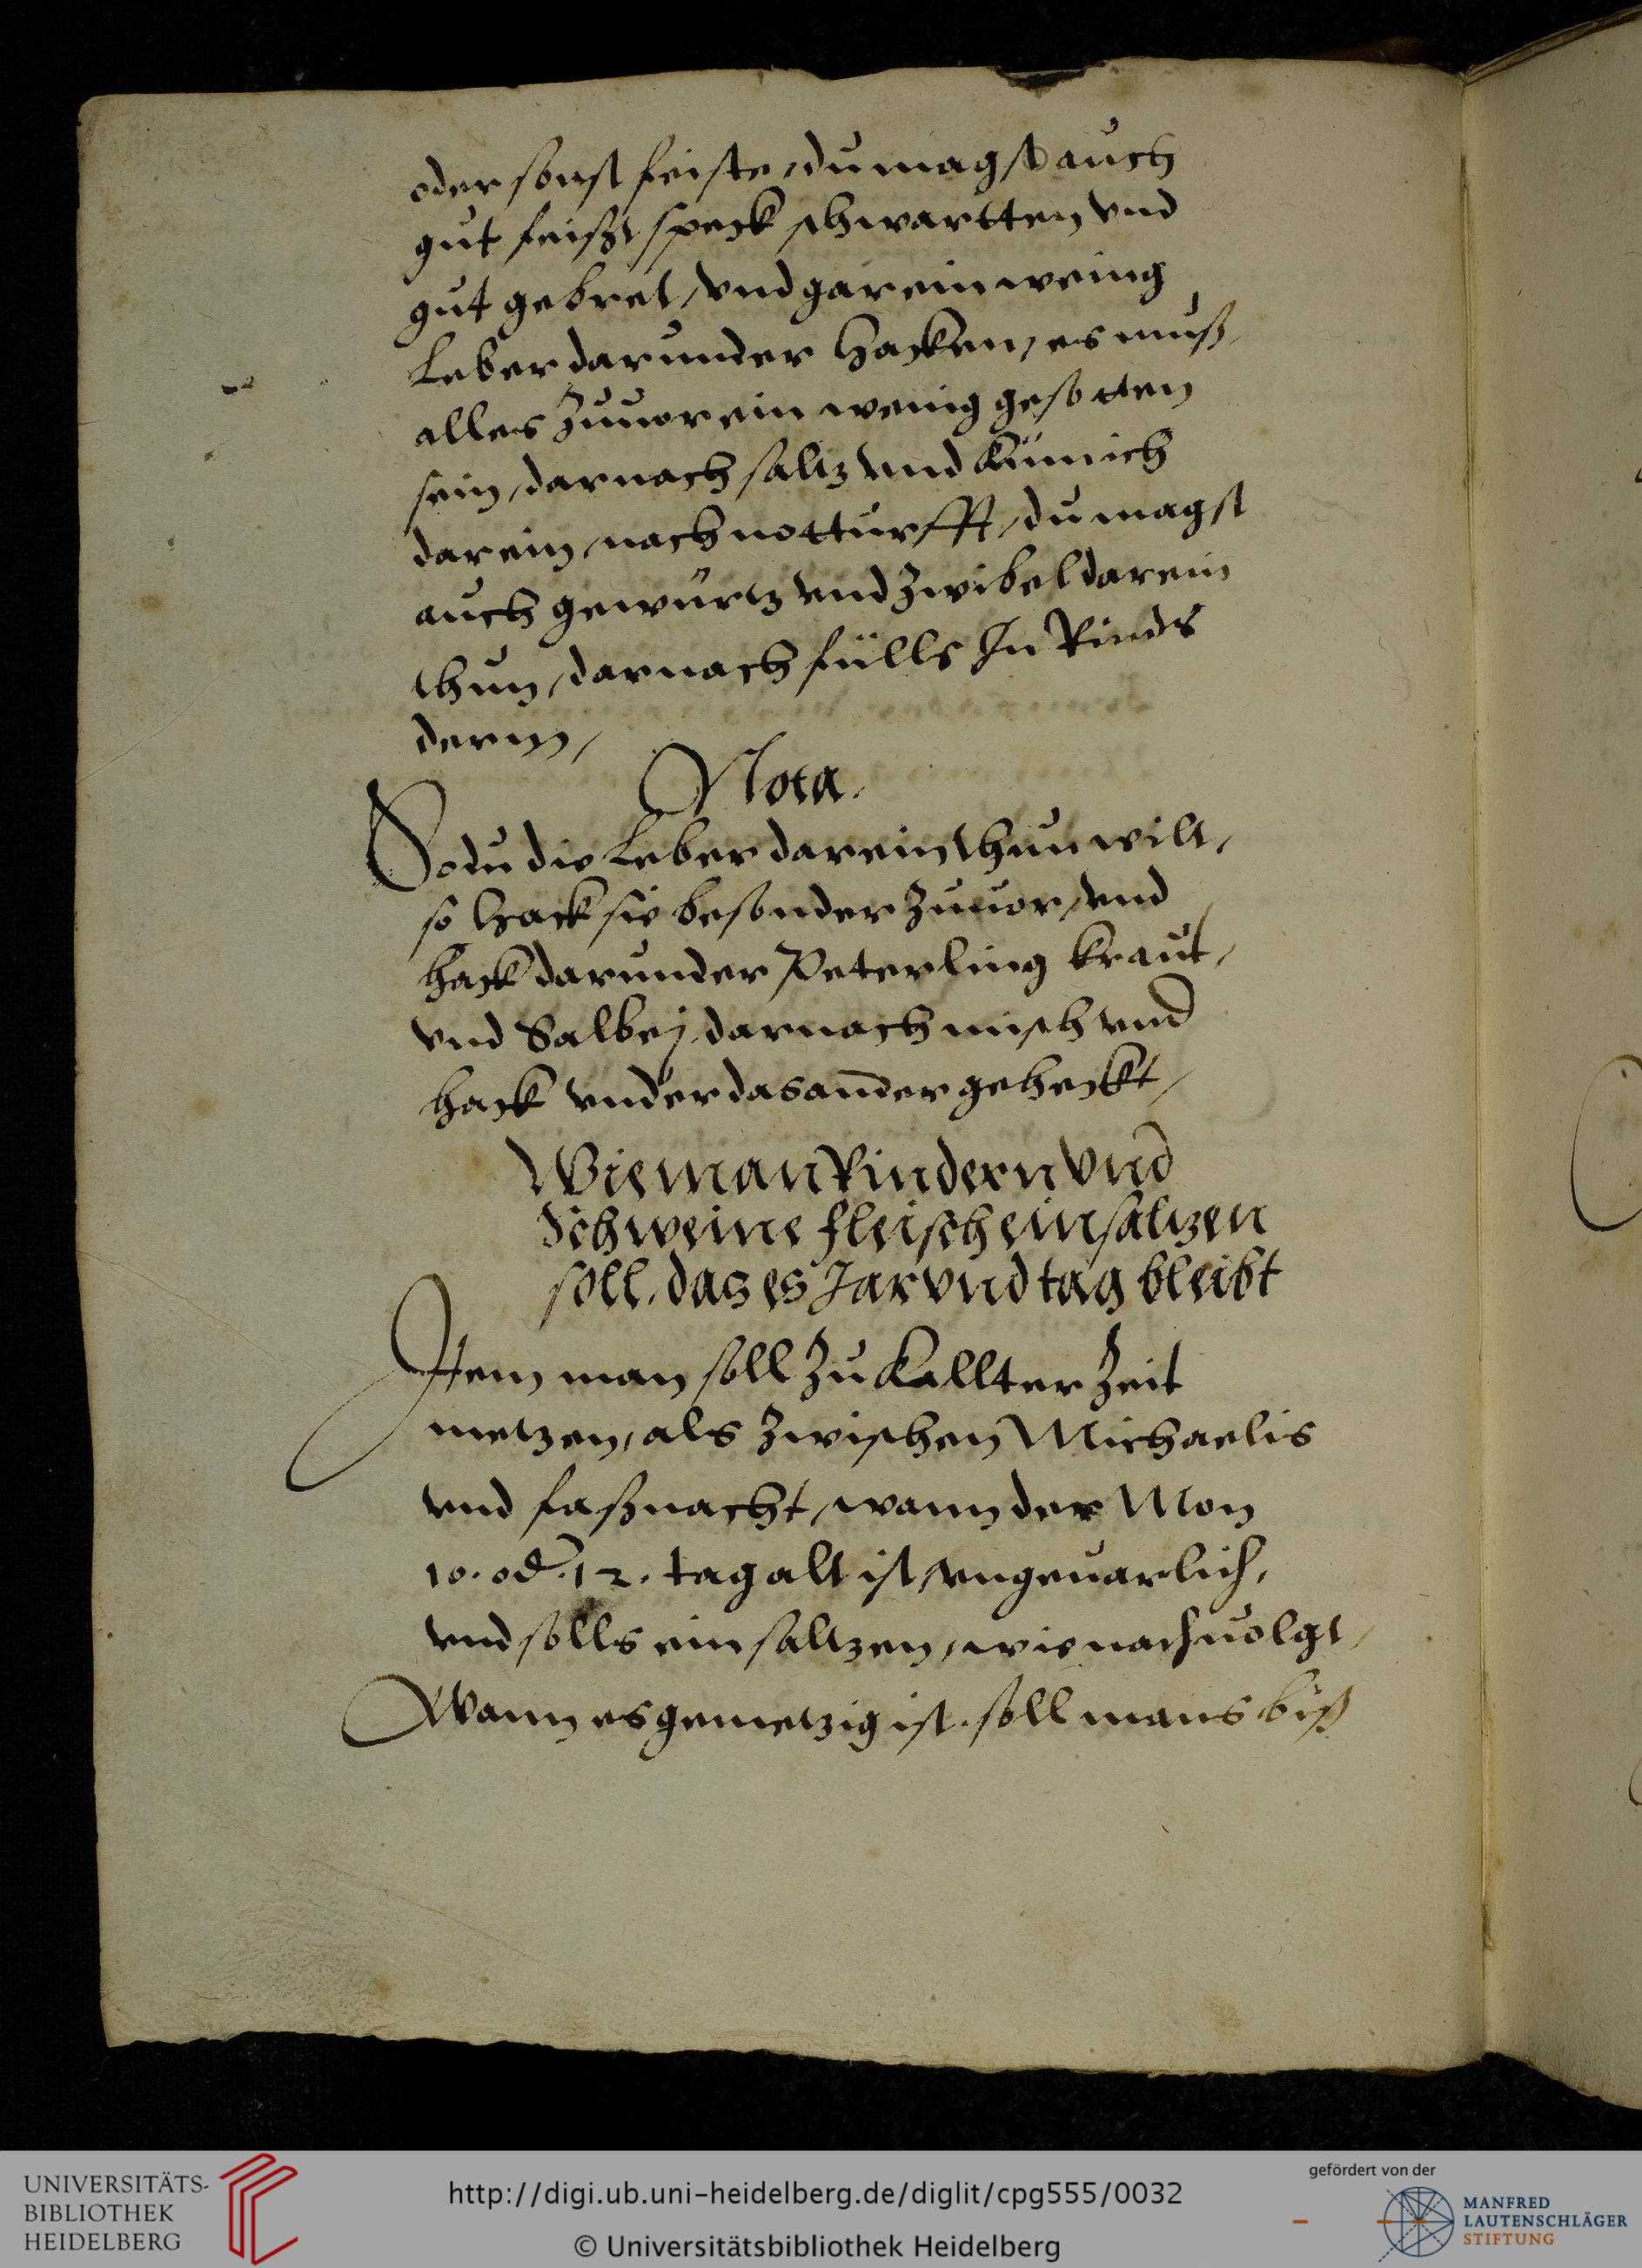 oder sonst feiste, du magst auch
gut feißt speck schwartten vnd
gut gebret, vnd gar ein wenig
Leber darunder hacken, es muß
alles zuuor ein wenig gesotten
sein, darnach saltz vnd Kümich
darein, nach notturfft, du magst
auch gewürtz vnd zwibel darein
thun, darnach fülls In Rinds
derm,
Nota.
So du die Leber darein thun wilt,
so hack sie besonder zuuor, vnd
hack darunder Peterling kraut,
vnd Salbej, darnach misch vnd
hack vnder das ander geheckt,
Wie man Rindern vnd
Schweine fleisch einsaltzen
soll, das es Jar vnd tag bleibt
Item man soll zu Kallter zeit
metzen, als zwischen Michaelis
vnd faßnacht, wann der Mon
10. od. 12. tag alt ist, vngeuarlich,
vnd solls einsaltzen, wie nachuolgt,
Wann es gemetzig ist, soll mans biß
UNIVERSITÄTS-
BIBLIOTHEK
HEIDELBERG
http://digi.ub.uni-heidelberg.de/diglit/cpg555/0032
© Universitätsbibliothek Heidelberg
gefördert von der
MANFRED
LAUTENSCHLÄGER
STIFTUNG